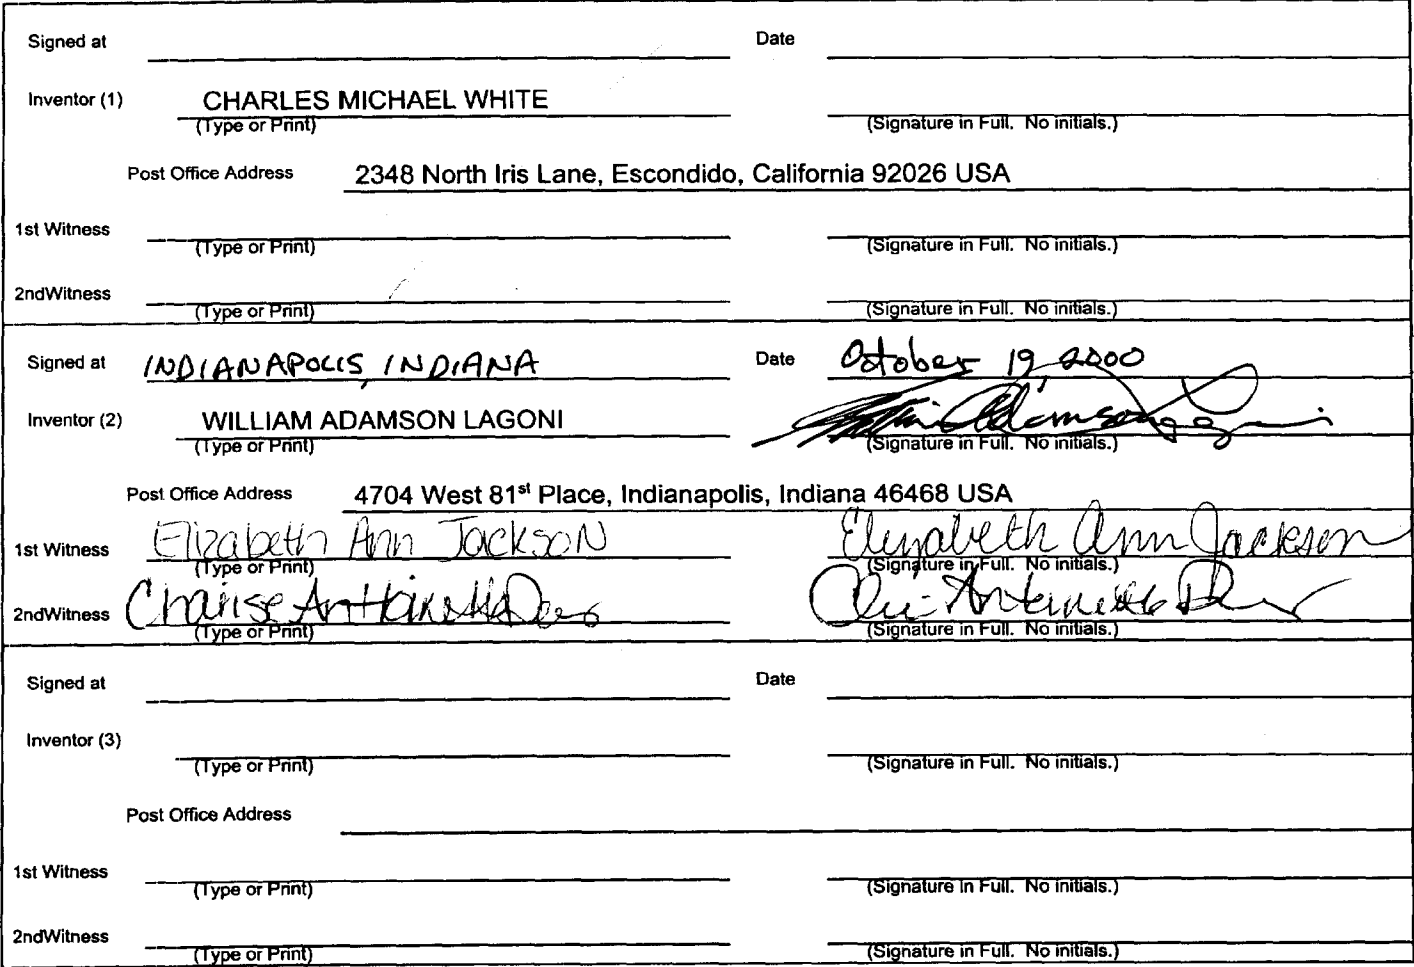 Signed at Date
Inventor (1) CHARLES MICHAEL WHITE
(Type or Print) (Signature in Full. No initials.)
Post Office Address 2348 North Iris Lane, Escondido, California 92026 USA
1st Witness
(Type or Print) (Signature in Full. No initials.)
2ndWitness
(Type or Print) (Signature in Full. No initials.)
Signed at INDIANAPOLIS, INDIANA Date October 19, 2000
Inventor (2) WILLIAM ADAMSON LAGONI
(Type or Print) (Signature in Full. No initials.)
Post Office Address 4704 West 81st Place, Indianapolis, Indiana 46468 USA
1st Witness Elizabeth Ann Jackson Elizabeth Ann Jackson
(Type or Print) (Signature in Full. No initials.)
2ndWitness Charise Antoinette
(Type or Print) (Signature in Full. No initials.)
Signed at Date
Inventor (3)
(Type or Print) (Signature in Full. No initials.)
Post Office Address
1st Witness
(Type or Print) (Signature in Full. No initials.)
2ndWitness
(Type or Print) (Signature in Full. No initials.)